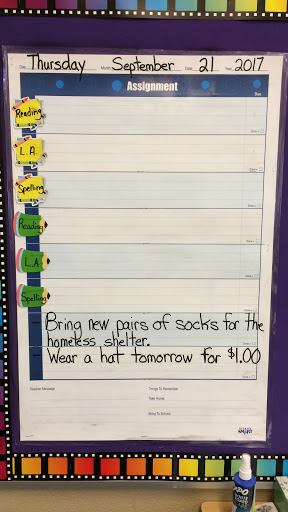 Day Thursday Month September Date 21 Year 2017
Assignment
Due
Reading
L.A.
Spelling
Reading
L.A.
Spelling
- Bring new pairs of socks for the
homeless shelter.
- Wear a hat tomorrow for $1.00
Teacher Message
Things To Remember
Take Home:
Bring To School:
EXPO